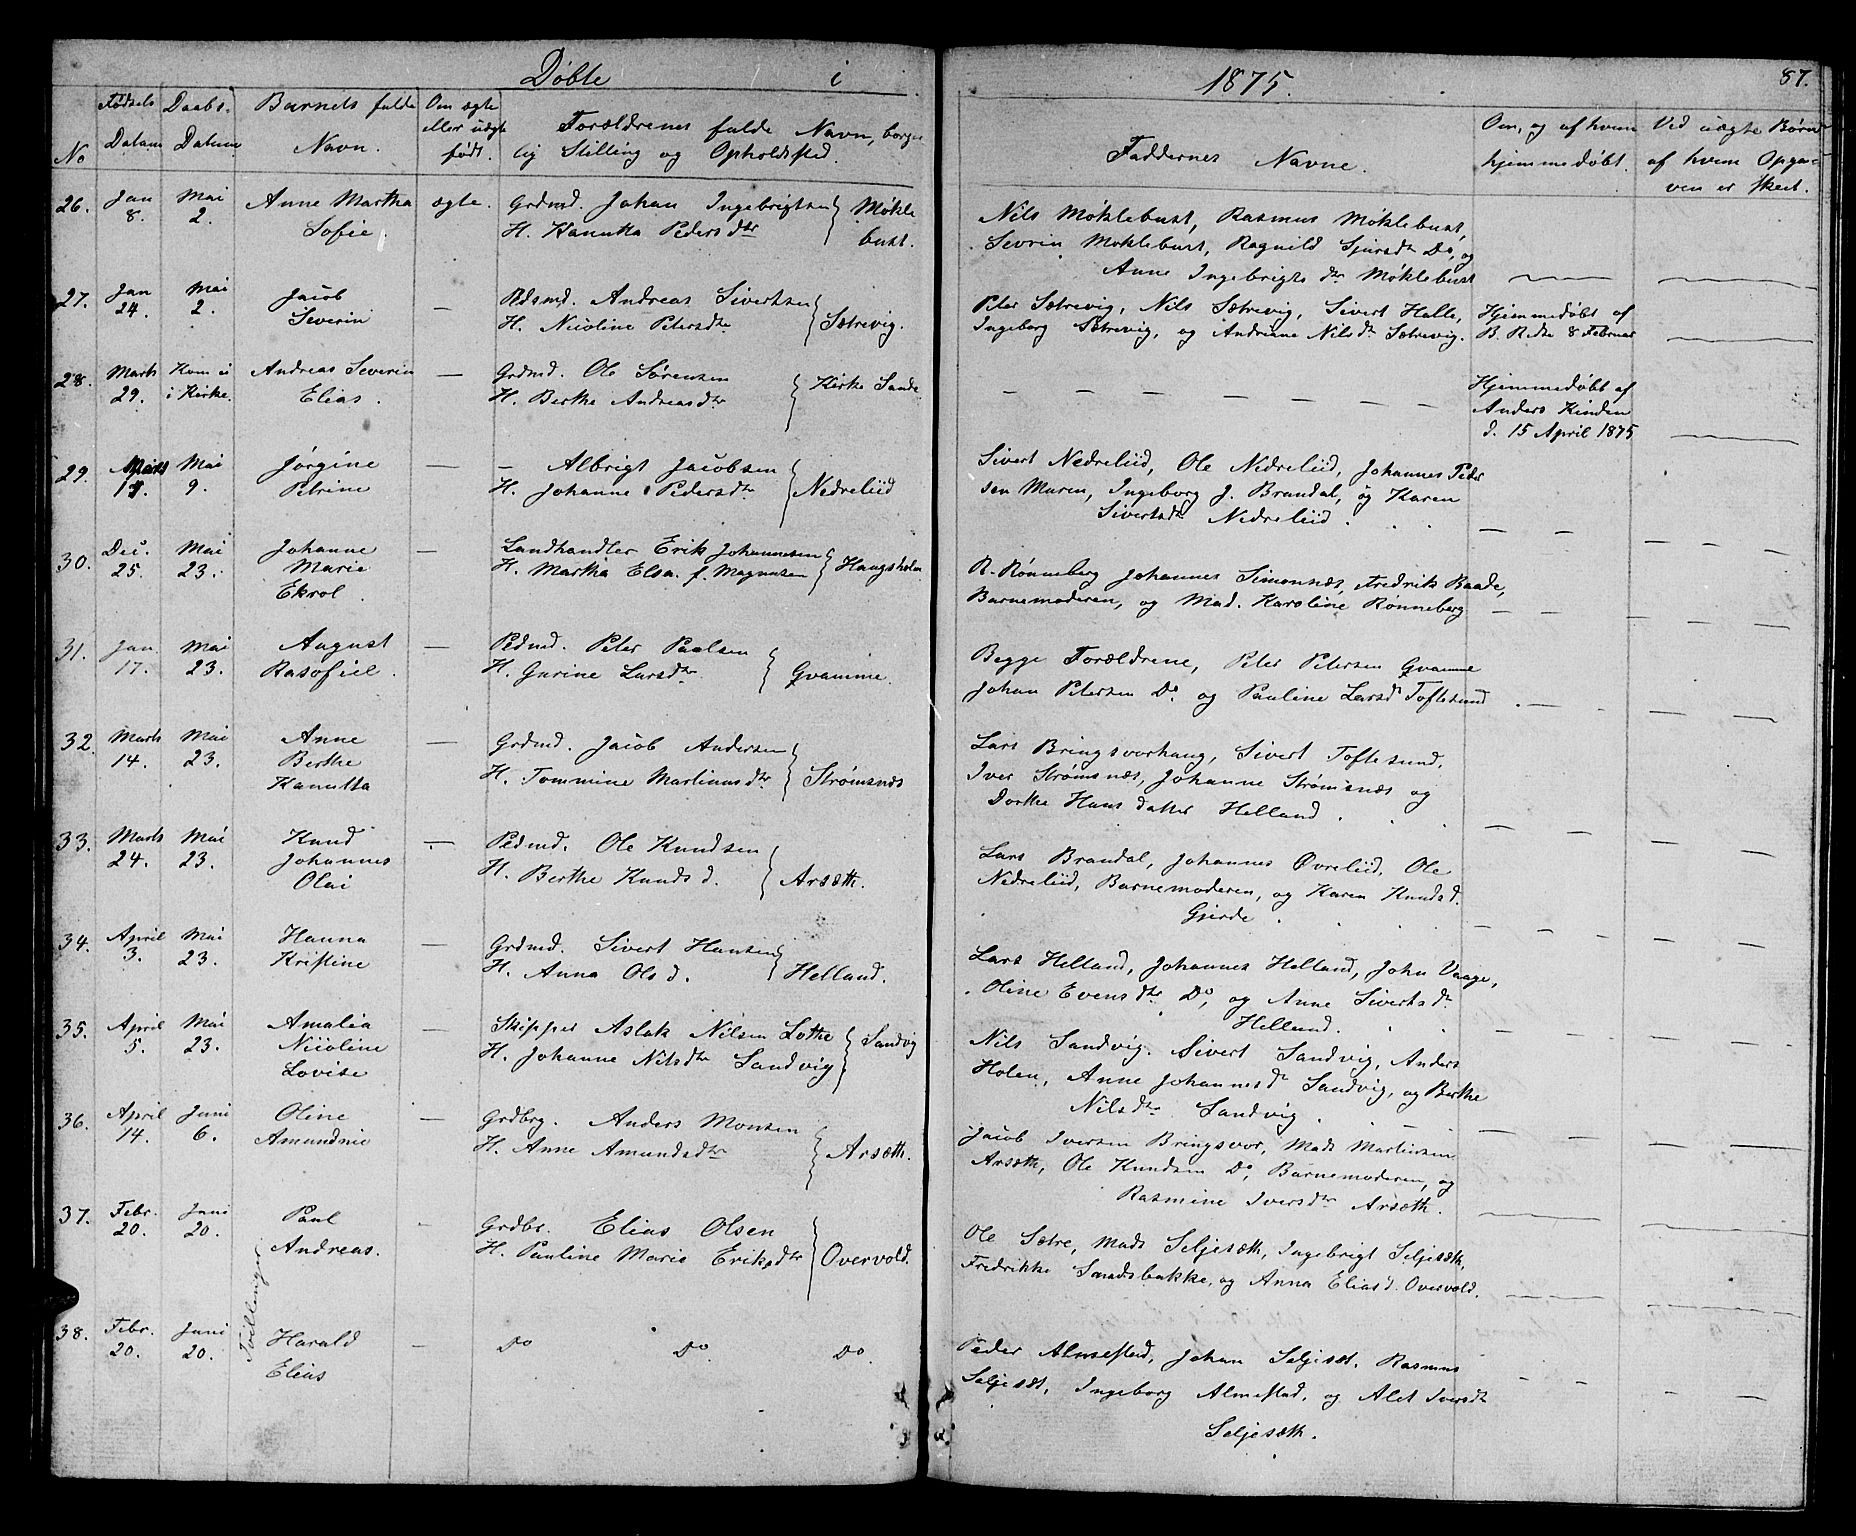 Døbte i 1875. 87.
No
Fødsels Datum
Daabs. Datum
Barnets fulde Navn.
Om ægte eller uægte født.
Forældrenes fulde Navn, borger
lig Stilling og Opholdsted.
Faddernes Navne.
Om, og af hvem hjemmedøbt.
Ved uægte Børn af hvem Opga-
ven er skeet.
26. Jan 8. Mai 2. Anne Martha Sofie. ægte.
Grdmd. Johan Ingebrigtsen
H. Kanutta Pedersdtr
Møkle
bust.
Nils Møklebust, Rasmus Møklebust,
Sevrin Møklebust, Ragnild Sjursdtr Do, og
Anne Ingebrigtsdtr Møklebust
27. Jan 24. Mai 2. Jacob Severin —
Pdsmd. Andreas Sivertsen
H. Nicoline Petersdtr
Sætrevig.
Peter Sætrevig, Nils Sætrevig, Sivert Helle,
Ingeborg Sætrevig, og Andriane Nilsdtr Sætrevig.
Hjemmedøbt af
B. Redte 8 Februar
28. Marts 29. Kom ei i Kirke. Andreas Severin Elias. —
Grdmd. Ole Sørensen
H. Berthe Andreasdtr
Kirke Sande
— — — — — — —
Hjemmedøbt af
Anders Kinden
d. 15 April 1875
29. Marts Mai 9. Jørgine Petrine —
— Albrigt Jacobsen
H. Johanne Pedersdtr
Nedreliid
Sivert Nedreliid, Ole Nedreliid, Johannes Peder
sen Maren, Ingeborg J. Brandal, og Karen
Sivertsdtr Nedreliid.
30. Dec. 25. Mai 23. Johanne Marie Ekrol. —
Landhandler Erik Johannesen
H. Martha Elsa. f. Magnusen
Haugsholm
R. Rønneberg Johannes Simonnæs, Fredrik Baade,
Barnemoderen, og Mad. Karoline Rønneberg
31. Jan 17. Mai 23. August Rasofiel. —
Pdsmd. Peter Paulsen
H. Gurine Larsdtr
Gvamme.
Begge Forældrene, Peter Petersen Gvamme
Johan Petersen Do. og Pauline Larsd Toftesund
32. Marts 14. Mai 23. Anne Berthe Kanutta —
Grdmd. Jacob Andersen
H. Tommine Martinusdtr
Strømsnæs
Lars Bringsvorhaug, Sivert Toftesund,
Iver Strømsnæs, Johanne Strømsnæs og
Dorthe Hans datter Helland.
33. Marts 24. Mai 23. Knud Johannes Olai —
Pdsmd. Ole Knudsen
H. Berthe Knudsd.
Arsæth.
Lars Brandal, Johannes Øvreliid, Ole
Nedreliid, Barnemoderen, og Karen Knudsd.
Gjerde.
34. April 3. Mai 23. Hanna Kristine —
Grdmd. Sivert Hansen
H. Anna Olsd.
Helland.
Lars Helland, Johannes Helland, John Vaage,
Oline Evensdtr Do, og Anne Sivertsdtr
Helland.
35. April 5. Mai 23. Amalia Nicoline Lovise —
Skipper Aslak Nilsen Lothe
H. Johanne Nilsdtr Sandvig
Sandvig
Nils Sandvig. Sivert Sandvig, Anders
Holen, Anne Johannesdtr Sandvig, og Berthe
Nilsdtr Sandvig.
36. April 14. Juni 6. Oline Amundine —
Grdbrg. Anders Monsen
H. Anne Amundsdtr
Arsæth.
Jacob Iversen Bringsvor, Mads Martinsen
Arsæth, Ole Knudsen Do, Barnemoderen, og
Rasmine Iversdtr Arsæth.
37. Febr. 20. Juni 20. Paul Andreas. —
Grdbr. Elias Olsen
H. Pauline Marie Eriksdtr
Overvold.
Ole Sætre, Mads Seljesæth, Ingebrigt Seljesæth,
Fredrikke Sandsbakke, og Anna Eliasd. Overvold.
Tvillinger
38. Febr. 20. Juni 20. Harald Elias —
Do Do. Do.
Peder Almestad, Johan Seljesæt, Rasmus
Seljesæt, Ingeborg Almestad, og Alet Iversdtr
Seljesæth.